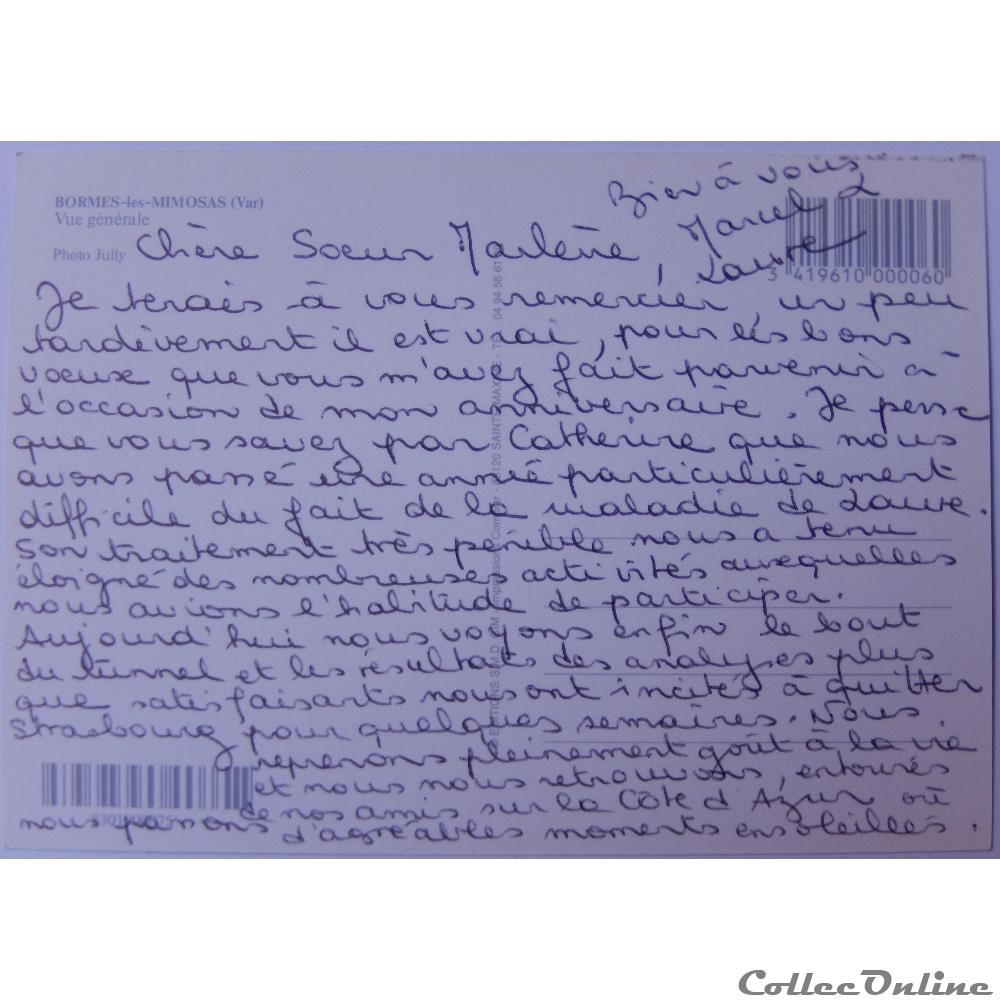 BORMES-les-MIMOSAS (Var)
Vue générale
Photo Jully
Chère Soeur Marlène,
Je tenais à vous remercier un peu
tardivement il est vrai, pour les bons
voeux que vous m'avez fait parvenir à
l'occasion de mon anniversaire. Je pense
que vous savez par Catherine que nous
avons passé une année particulièrement
difficile du fait de la maladie de Laure.
Son traitement très pénible nous a tenu
éloigné des nombreuses activités auxquelles
nous avions l'habitude de participer.
Aujourd'hui nous voyons enfin le bout
du tunnel et les résultats des analyses plus
que satisfaisants nous ont incités à quitter
Strasbourg pour quelques semaines. Nous
reprenons pleinement goût à la vie
et nous nous retrouvons, entourés
de nos amis sur la Côte d'Azur où
nous passons d'agréables moments ensoleillés.
Bien à vous
Marcel &
Laure
3 419610 000060
EDITIONS S.M.D.
20 SAINTE MAXIME - TÉL : 04 94 56 61
CollecOnline